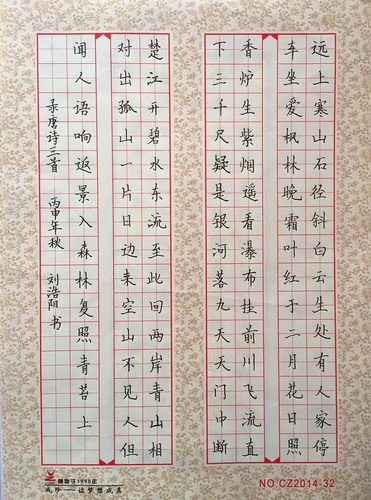 远上寒山石径斜白云生处有人家停
车坐爱枫林晚霜叶红于二月花日照
香炉生紫烟遥看瀑布挂前川飞流直
下三千尺疑是银河落九天天门中断
楚江开碧水东流至此回两岸青山相
对出孤山一片日边来空山不见人但
闻人语响返景入森林复照青苔上
录唐诗三首 丙申年秋 刘浩阳 书
1998年
成珍——让梦想成真
NO.CZ2014-32